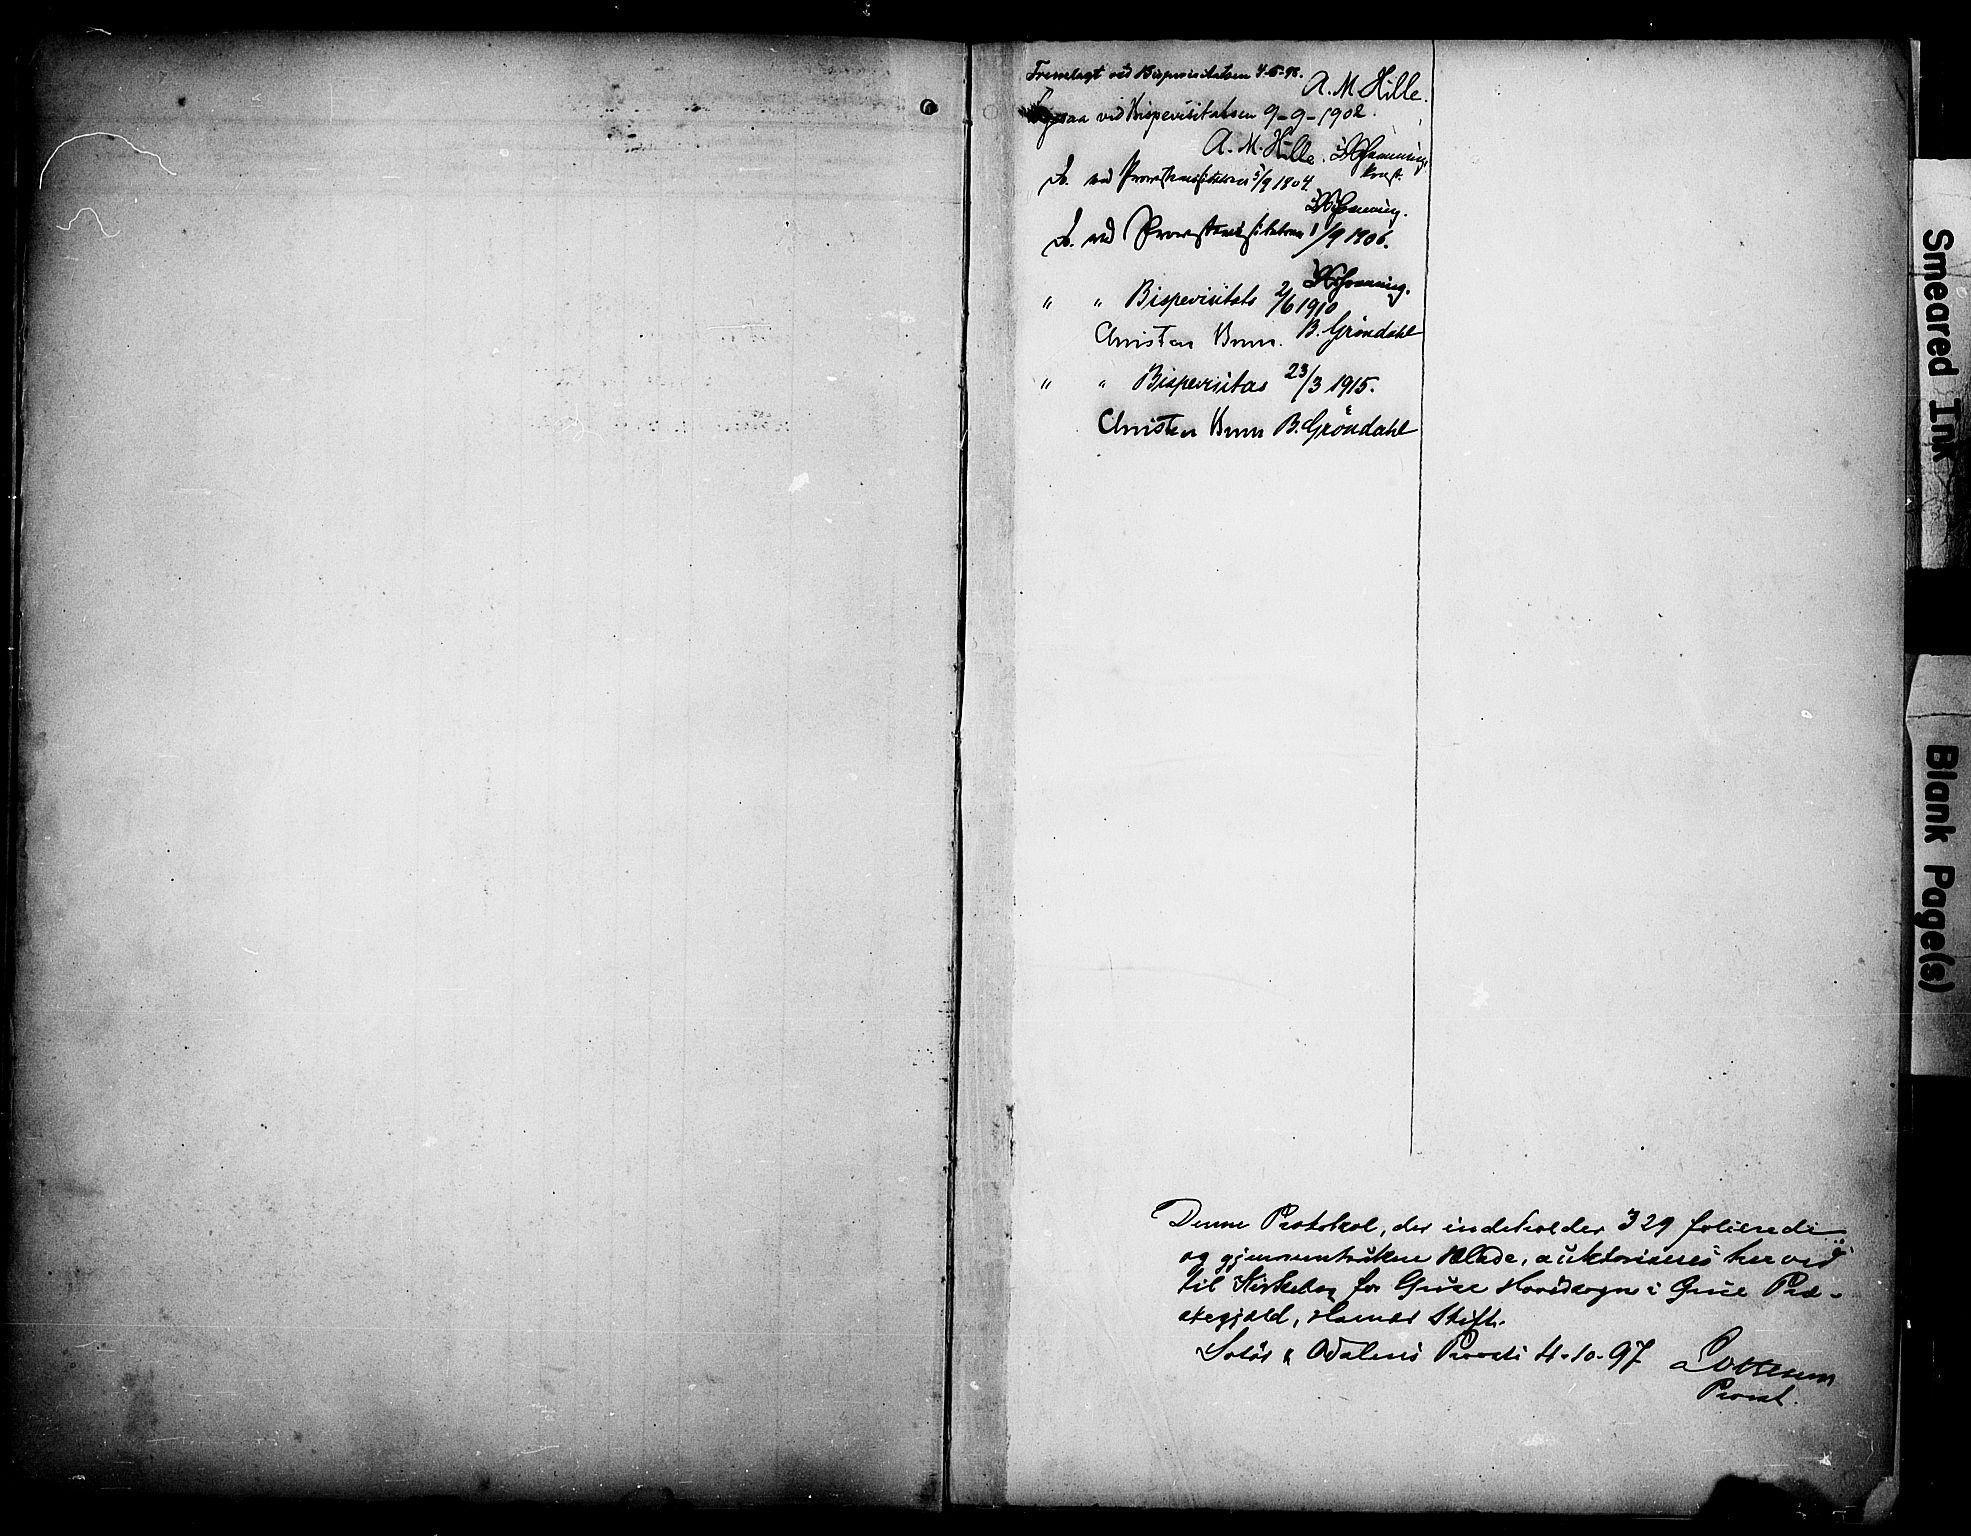 Fremlagt ved Bispevisitatsen 4-6-98.
A. M. Hille.
Ligesaa ved Bispevisitatsen 9-9-1902.
A. M. Hille.
Provst.
L. ved Provstevisitatsen 5/9 1904.
L. ved Provstevisitatsen 1/9 1906.
" " Bispevisitats 2/6 1910
Christen Brun. B. Gröndahl
" " Bispevisitas 23/3 1915.
Christen Brun B. Gröndahl
Denne Protokol, der indeholder 329 folierede
og gjennemtrukne Blade, auktoriseres herved
til Kirkebog for Grue Hovedsogn i Grue Præ-
stegjæld, Hamar Stift.
Solör & Odalens Provsti 4-10-97
Provst.
Smeared Ink
Blank Page(s)